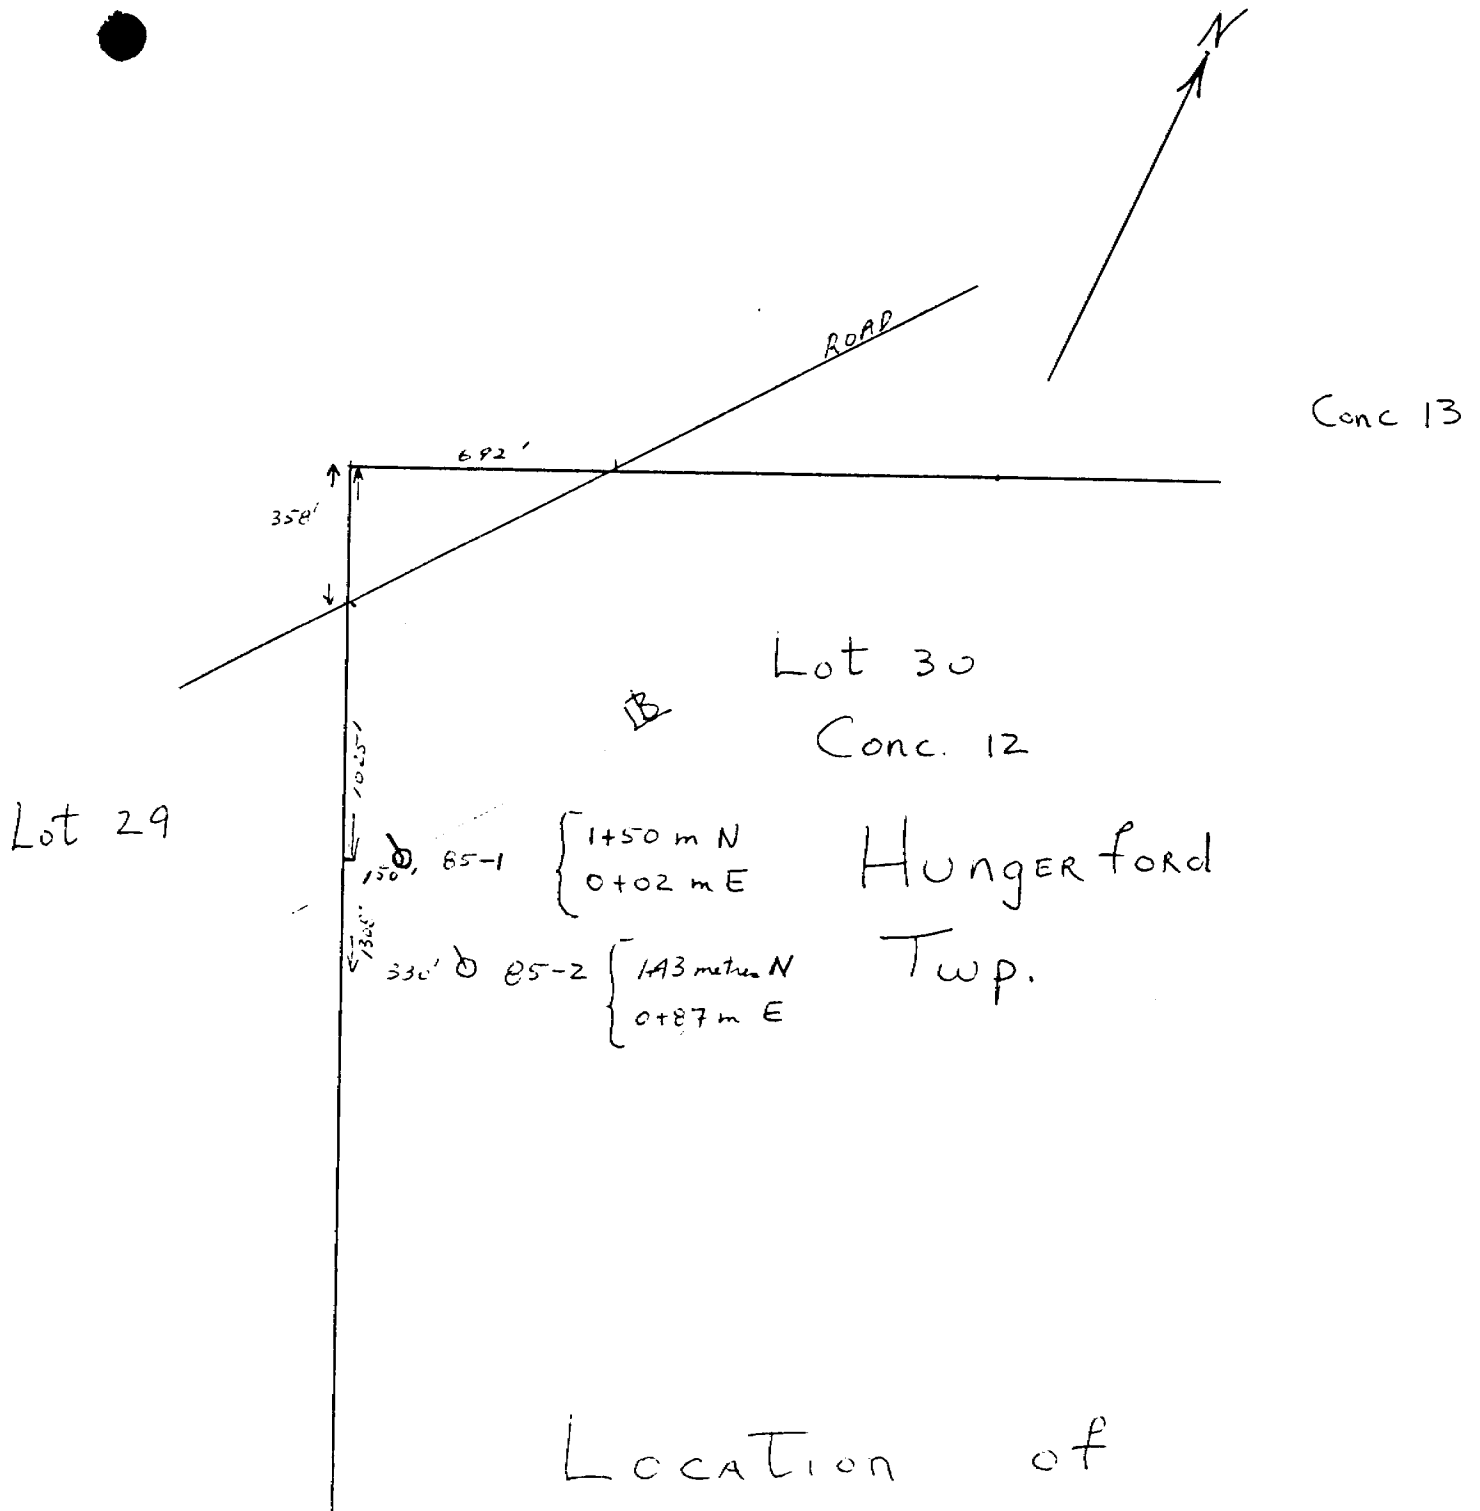 N
ROAD
Conc 13
692'
358'
Lot 30
B
Conc. 12
1025'
Lot 29
150' 85-1 1+50 m N
0+02 m E
Hungerford
1308'
330' 85-2 1+43 metres N
0+87 m E
Twp.
Location of